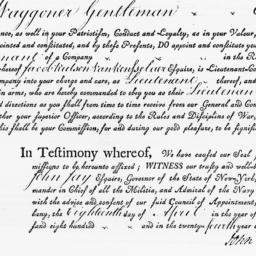 Waggoner Gentleman
nce, as well in your Patriotism, Conduct and Loyalty, as in your Valour,
ointed and constituted, and by these Presents, DO appoint and constitute yo
nant of a Company
hereof Jacob Rutsen Van Rensselaer Esquire, is Lieutenant-Co
ompany into your charge and care, as Lieutenant thereof, and
in arms, who are hereby commanded to obey you as their Lieutenant
d directions as you shall from time to time receive from our General and Com
ther your Superior Officer, according to the Rules and Discipline of War,
his shall be your Commission, for and during our good pleasure, to be signifi
In Testimony whereof, We have caused our Seal
missions to be hereunto affixed; WITNESS our trusty and wellb
John Jay Esquire, Governor of the State of New-York,
mander in Chief of all the Militia, and Admiral of the Navy
with the advice and consent of our said Council of Appointment,
bany, the Eighteenth day of April in the year of
and eight hundred and in the twenty-fourth year o
John